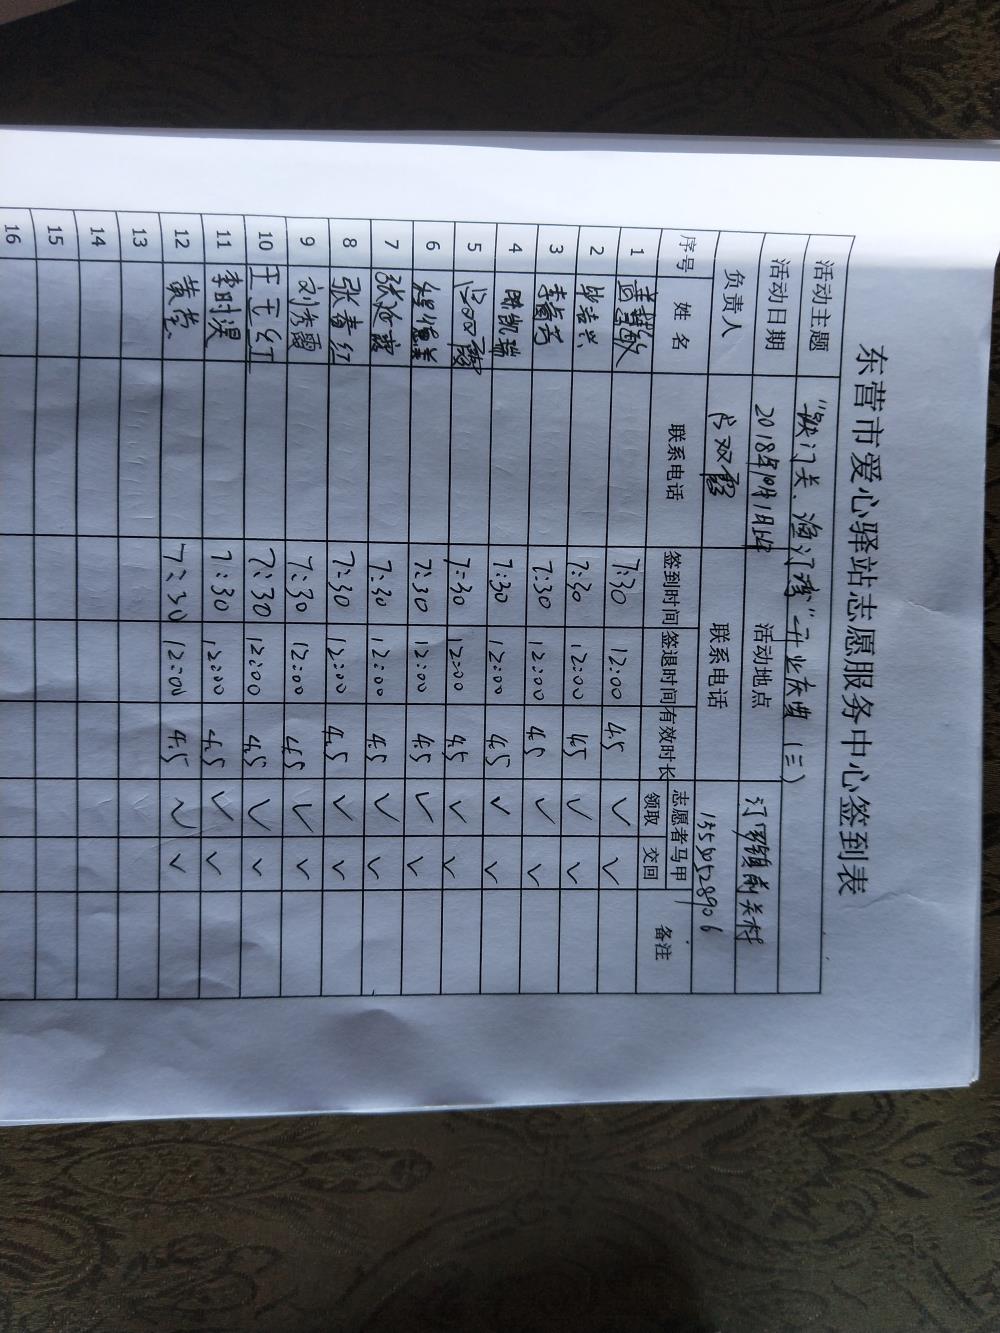 东营市爱心驿站志愿服务中心签到表
活动主题 "铁门关、渔汀湾"开业庆典（三）
活动日期 2018年10月1日 活动地点 汀罗镇前关村
负责人 双霞 联系电话 13505528906
序号 姓名 联系电话 签到时间 签退时间 有效时长 志愿者马甲 备注
领取 交回
1 慧敏 7:30 12:00 4.5 ✓ ✓
2 7:30 12:00 4.5 ✓ ✓
3 李 芳 7:30 12:00 4.5 ✓ ✓
4 陈凯瑞 7:30 12:00 4.5 ✓ ✓
5 双霞 7:30 12:00 4.5 ✓ ✓
6 7:30 12:00 4.5 ✓ ✓
7 张 霞 7:30 12:00 4.5 ✓ ✓
8 张春红 7:30 12:00 4.5 ✓ ✓
9 刘秀霞 7:30 12:00 4.5 ✓ ✓
10 王玉红 7:30 12:00 4.5 ✓ ✓
11 李时 7:30 12:00 4.5 ✓ ✓
12 黄莹 7:30 12:00 4.5 ✓ ✓
13
14
15
16